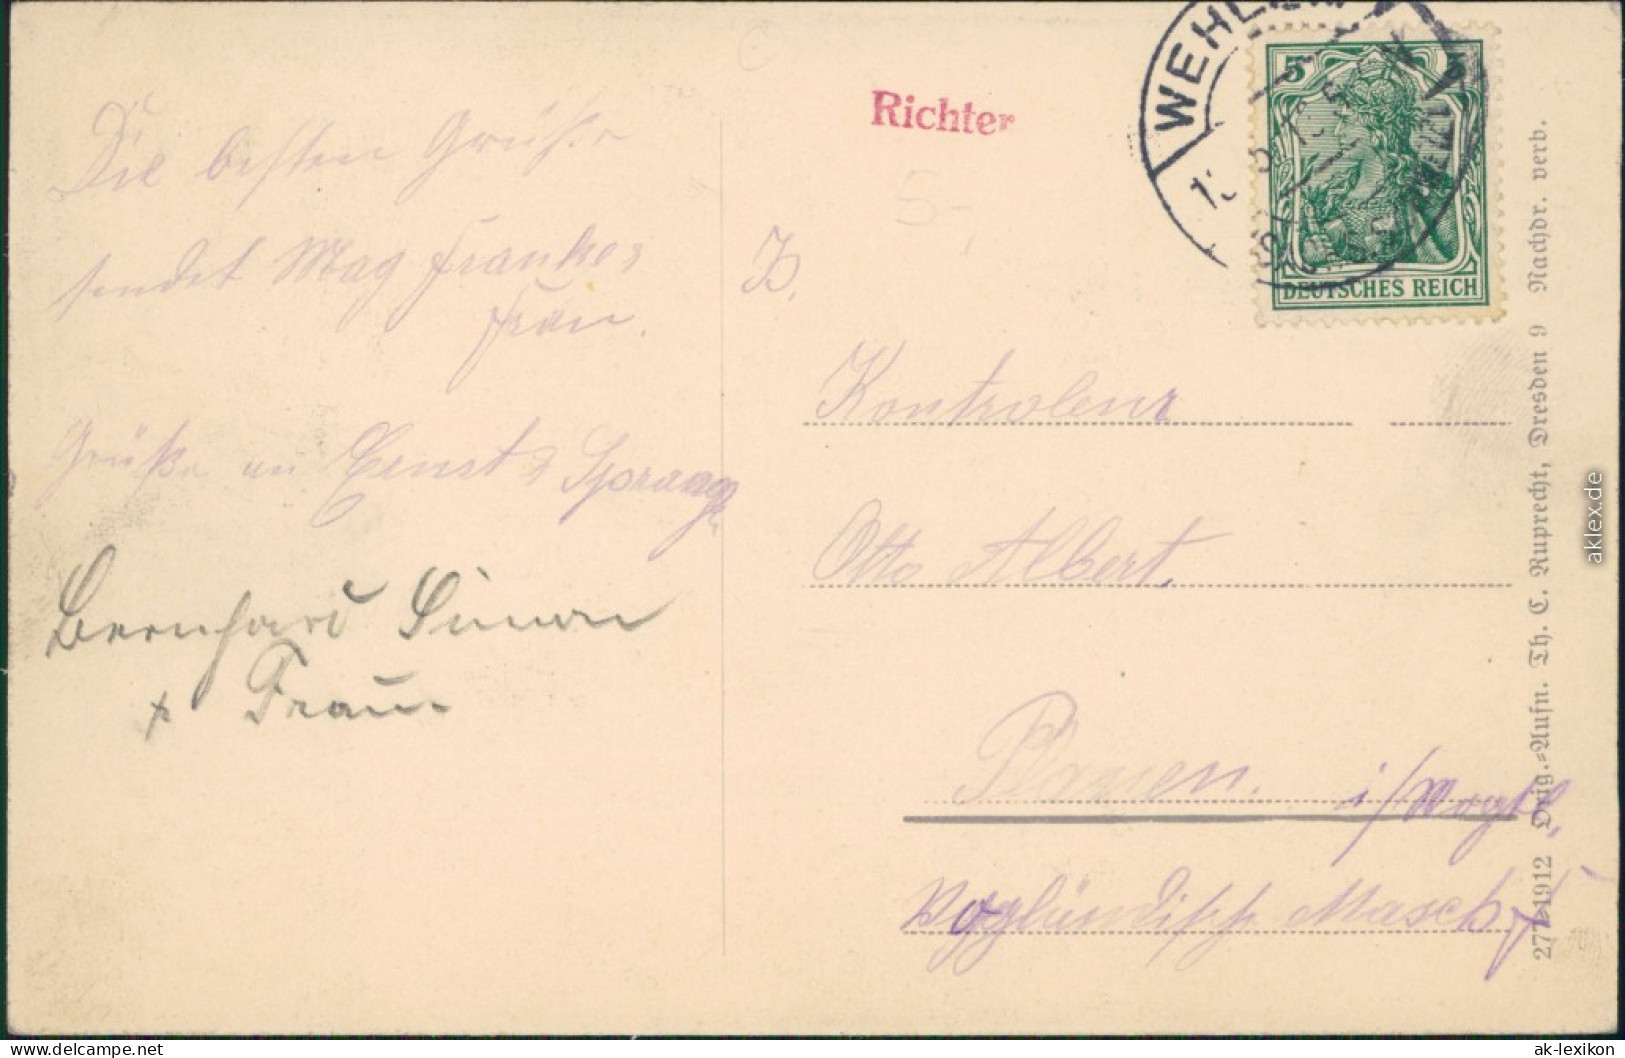 Die besten Grüße
sendet Max Franke
Frau.
Grüße an Ernst
Bernhard Simon
+ Frau.
Richter
WEHLEN
5
DEUTSCHES REICH
Kontroleur
Otto Albert.
Plauen. i/Vogtl.
Vogtländische Masch
277 1912 Orig.-Aufn. Th. C. Ruprecht, Dresden 9 Nachdr. verb.
aklex.de
www.delcampe.net
ak-lexikon